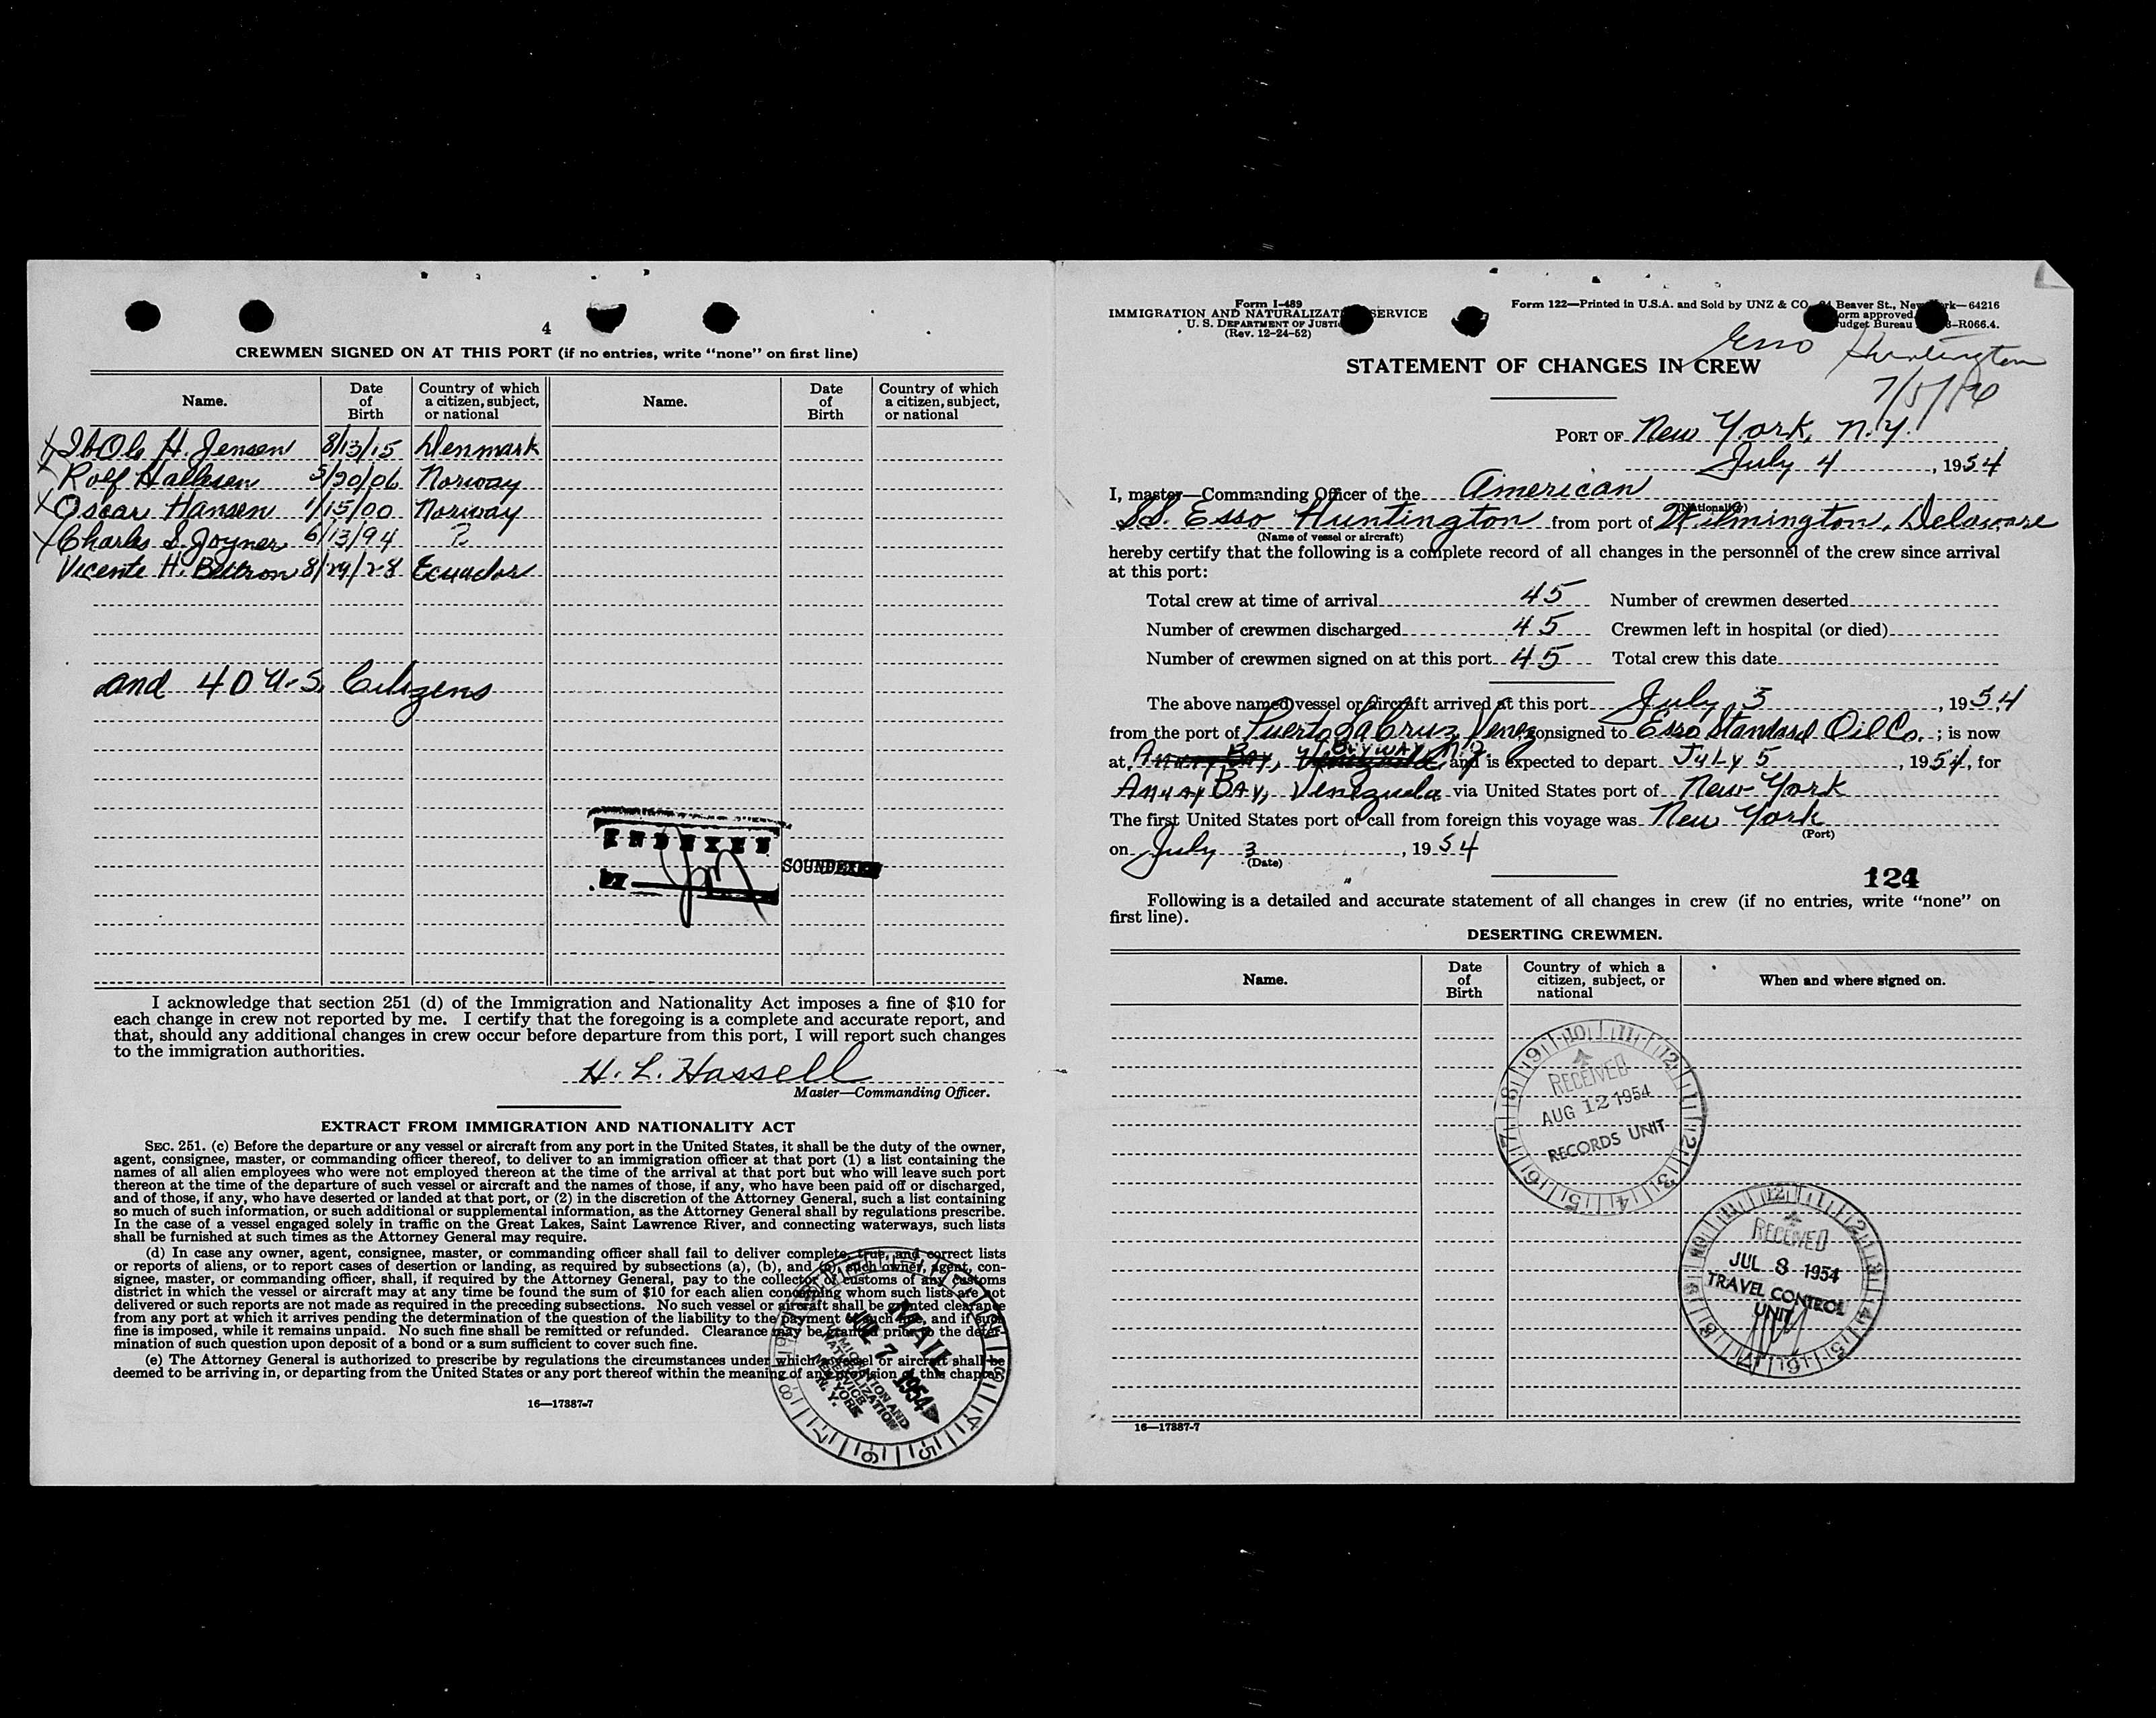 4
CREWMEN SIGNED ON AT THIS PORT (if no entries, write “none” on first line)
Name. Date of Birth Country of which a citizen, subject, or national Name. Date of Birth Country of which a citizen, subject, or national
X H. Jensen 8/13/15 Denmark
X Rolf 5/20/06 Norway
X Oscar Hansen 1/15/00 Norway
X Charles S. Joyner 6/13/94 ?
Vicente H. 8/29/28 Ecuador
and 40 U.S. Citizens
INDEXED
BY
SOUNDEXED
I acknowledge that section 251 (d) of the Immigration and Nationality Act imposes a fine of $10 for
each change in crew not reported by me. I certify that the foregoing is a complete and accurate report, and
that, should any additional changes in crew occur before departure from this port, I will report such changes
to the immigration authorities.
H. L. Hassell
Master—Commanding Officer.
EXTRACT FROM IMMIGRATION AND NATIONALITY ACT
SEC. 251. (c) Before the departure or any vessel or aircraft from any port in the United States, it shall be the duty of the owner,
agent, consignee, master, or commanding officer thereof, to deliver to an immigration officer at that port (1) a list containing the
names of all alien employees who were not employed thereon at the time of the arrival at that port but who will leave such port
thereon at the time of the departure of such vessel or aircraft and the names of those, if any, who have been paid off or discharged,
and of those, if any, who have deserted or landed at that port, or (2) in the discretion of the Attorney General, such a list containing
so much of such information, or such additional or supplemental information, as the Attorney General shall by regulations prescribe.
In the case of a vessel engaged solely in traffic on the Great Lakes, Saint Lawrence River, and connecting waterways, such lists
shall be furnished at such times as the Attorney General may require.
(d) In case any owner, agent, consignee, master, or commanding officer shall fail to deliver complete, true, and correct lists
or reports of aliens, or to report cases of desertion or landing, as required by subsections (a), (b), and (c), such owner, agent, con-
signee, master, or commanding officer, shall, if required by the Attorney General, pay to the collector of customs of any customs
district in which the vessel or aircraft may at any time be found the sum of $10 for each alien concerning whom such lists are not
delivered or such reports are not made as required in the preceding subsections. No such vessel or aircraft shall be granted clearance
from any port at which it arrives pending the determination of the question of the liability to the payment of such fine, and if such
fine is imposed, while it remains unpaid. No such fine shall be remitted or refunded. Clearance may be granted prior to the deter-
mination of such question upon deposit of a bond or a sum sufficient to cover such fine.
(e) The Attorney General is authorized to prescribe by regulations the circumstances under which a vessel or aircraft shall be
deemed to be arriving in, or departing from the United States or any port thereof within the meaning of any provision of this chapter.
16—17887-7
MAIL
JUL 7 1954
IMMIGRATION AND
NATURALIZATION
SERVICE
NEW YORK
N. Y.
Form I-489
IMMIGRATION AND NATURALIZATION SERVICE
U. S. DEPARTMENT OF JUSTICE
(Rev. 12-24-52)
Form 122—Printed in U.S.A. and Sold by UNZ & CO. Beaver St., New York—64216
Form approved.
Budget Bureau -R066.4.
Esso Huntington
STATEMENT OF CHANGES IN CREW
PORT OF New York, N.Y.
July 4, 1954
I, master—Commanding Officer of the American
(Nationality)
SS. Esso Huntington from port of Wilmington, Delaware
(Name of vessel or aircraft)
hereby certify that the following is a complete record of all changes in the personnel of the crew since arrival
at this port:
Total crew at time of arrival 45 Number of crewmen deserted
Number of crewmen discharged 45 Crewmen left in hospital (or died)
Number of crewmen signed on at this port 45 Total crew this date
The above named vessel or aircraft arrived at this port July 3, 1954
from the port of Puerto La Cruz, Venez consigned to Esso Standard Oil Co.; is now
at and is expected to depart July 5, 1954, for
Amuay Bay, Venezuela via United States port of New York
The first United States port of call from foreign this voyage was New York
(Port)
on July 3, 1954
(Date)
124
Following is a detailed and accurate statement of all changes in crew (if no entries, write “none” on
first line).
DESERTING CREWMEN.
Name. Date of Birth Country of which a citizen, subject, or national When and where signed on.
RECEIVED
AUG 12 1954
RECORDS UNIT
RECEIVED
JUL 8 1954
TRAVEL CONTROL
UNIT
16—17887-7